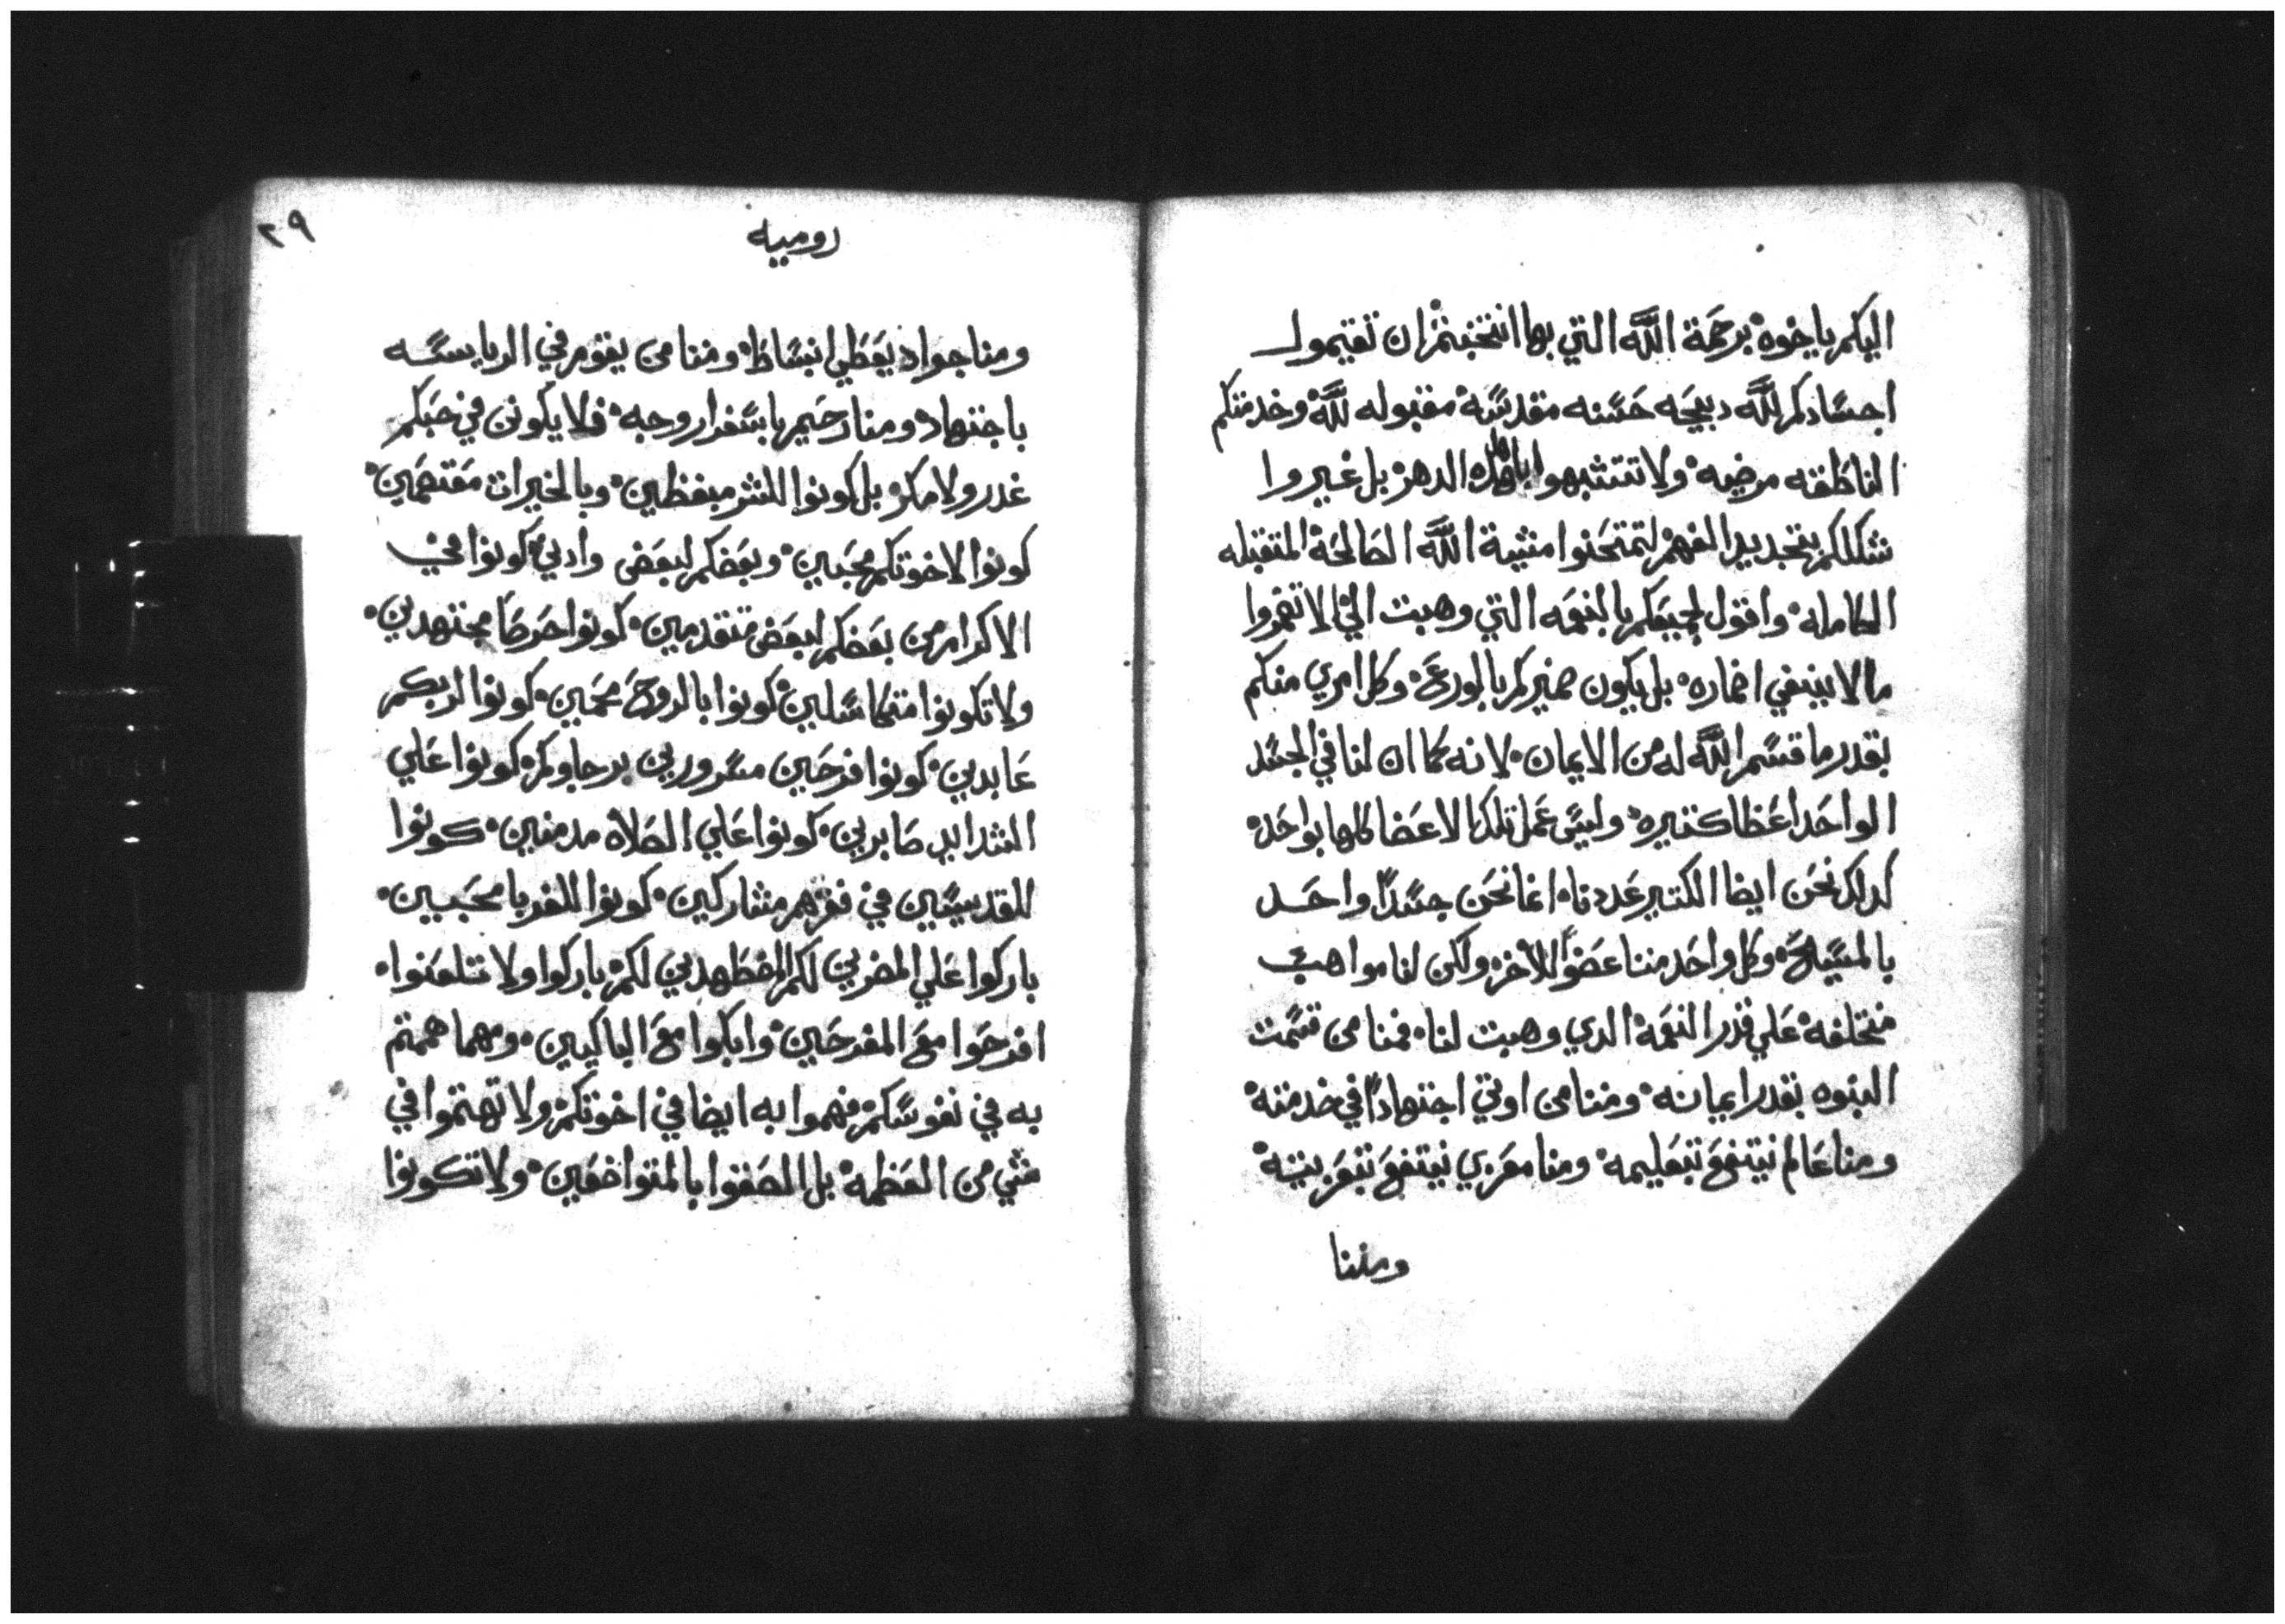 اليكم يا خوه برحمة الله التي بها انتخبتم ان تقيموا
اجسادكم لله دبيحه حسنه مقدسة مقبوله لله وخدمتكم
الناطقه مرضيه ولا تتشبهوا باهل الدهر بل غيروا
شكلكم بتجديد الفهم لتمتحنوا مشية الله الصالحة المتقبله
الكامله واقول لجميعكم بالنعمه التي وهبت الي لا تضمروا
ما لا ينبغي اضماره بل يكون ضميركم بالورع وكل امري منكم
بقدر ما قسم الله له من الايمان لانه كما ان لنا في الجسد
الواحد اعظا كتيره وليس عمل تلك الاعضا كلها بواحد
كدلك نحن ايضا الكتير عددنا انما نحن جسدا واحد
بالمسيح وكل واحد منا عضوا للاخر ولكن لنا مواهب
مختلفه علي قدر النعمة الدي وهبت لنا فمنا من قسمت
النبوه بقدر ايمانه ومنا من اوتي اجتهادا في خدمته
ومنا عالم ينتفع بتعليمه ومنا معزي ينتفع بتعزيته
ومنا
٢٩
روميه
ومنا جواد يعطي انبساط ومنا من يقوم في الرياسه
باجتهاد ومنا رحيم باسفرار وجه فلا يكونن في حبكم
غدر ولا مكر بل كونوا للشر مبغظين وبالخيرات معتصمين
كونوا لاخوتكم محبين وبعضكم لبعض وادين كونوا في
الاكرام من بعضكم لبعض متقدمين كونوا حرصا مجتهدين
ولا تكونوا متكاسلين كونوا بالروح محمين كونوا لربكم
عابدين كونوا فرحين مسرورين برجاوكم كونوا علي
الشدايد صابرين كونوا علي الصلاه مدمنين كونوا
للقديسين في فقرهم مشاركين كونوا للغربا محبين
باركوا علي المضرين لكم المضطهدين لكم باركوا ولا تلعنوا
افرحوا مع المفرحين وابكوا مع الباكيين ومهما هممتم
به في نفوسكم فهموا به ايضا في اخوتكم ولا تهتموا في
شي من العظمه بل الصقوا بالمتواضعين ولا تكونوا